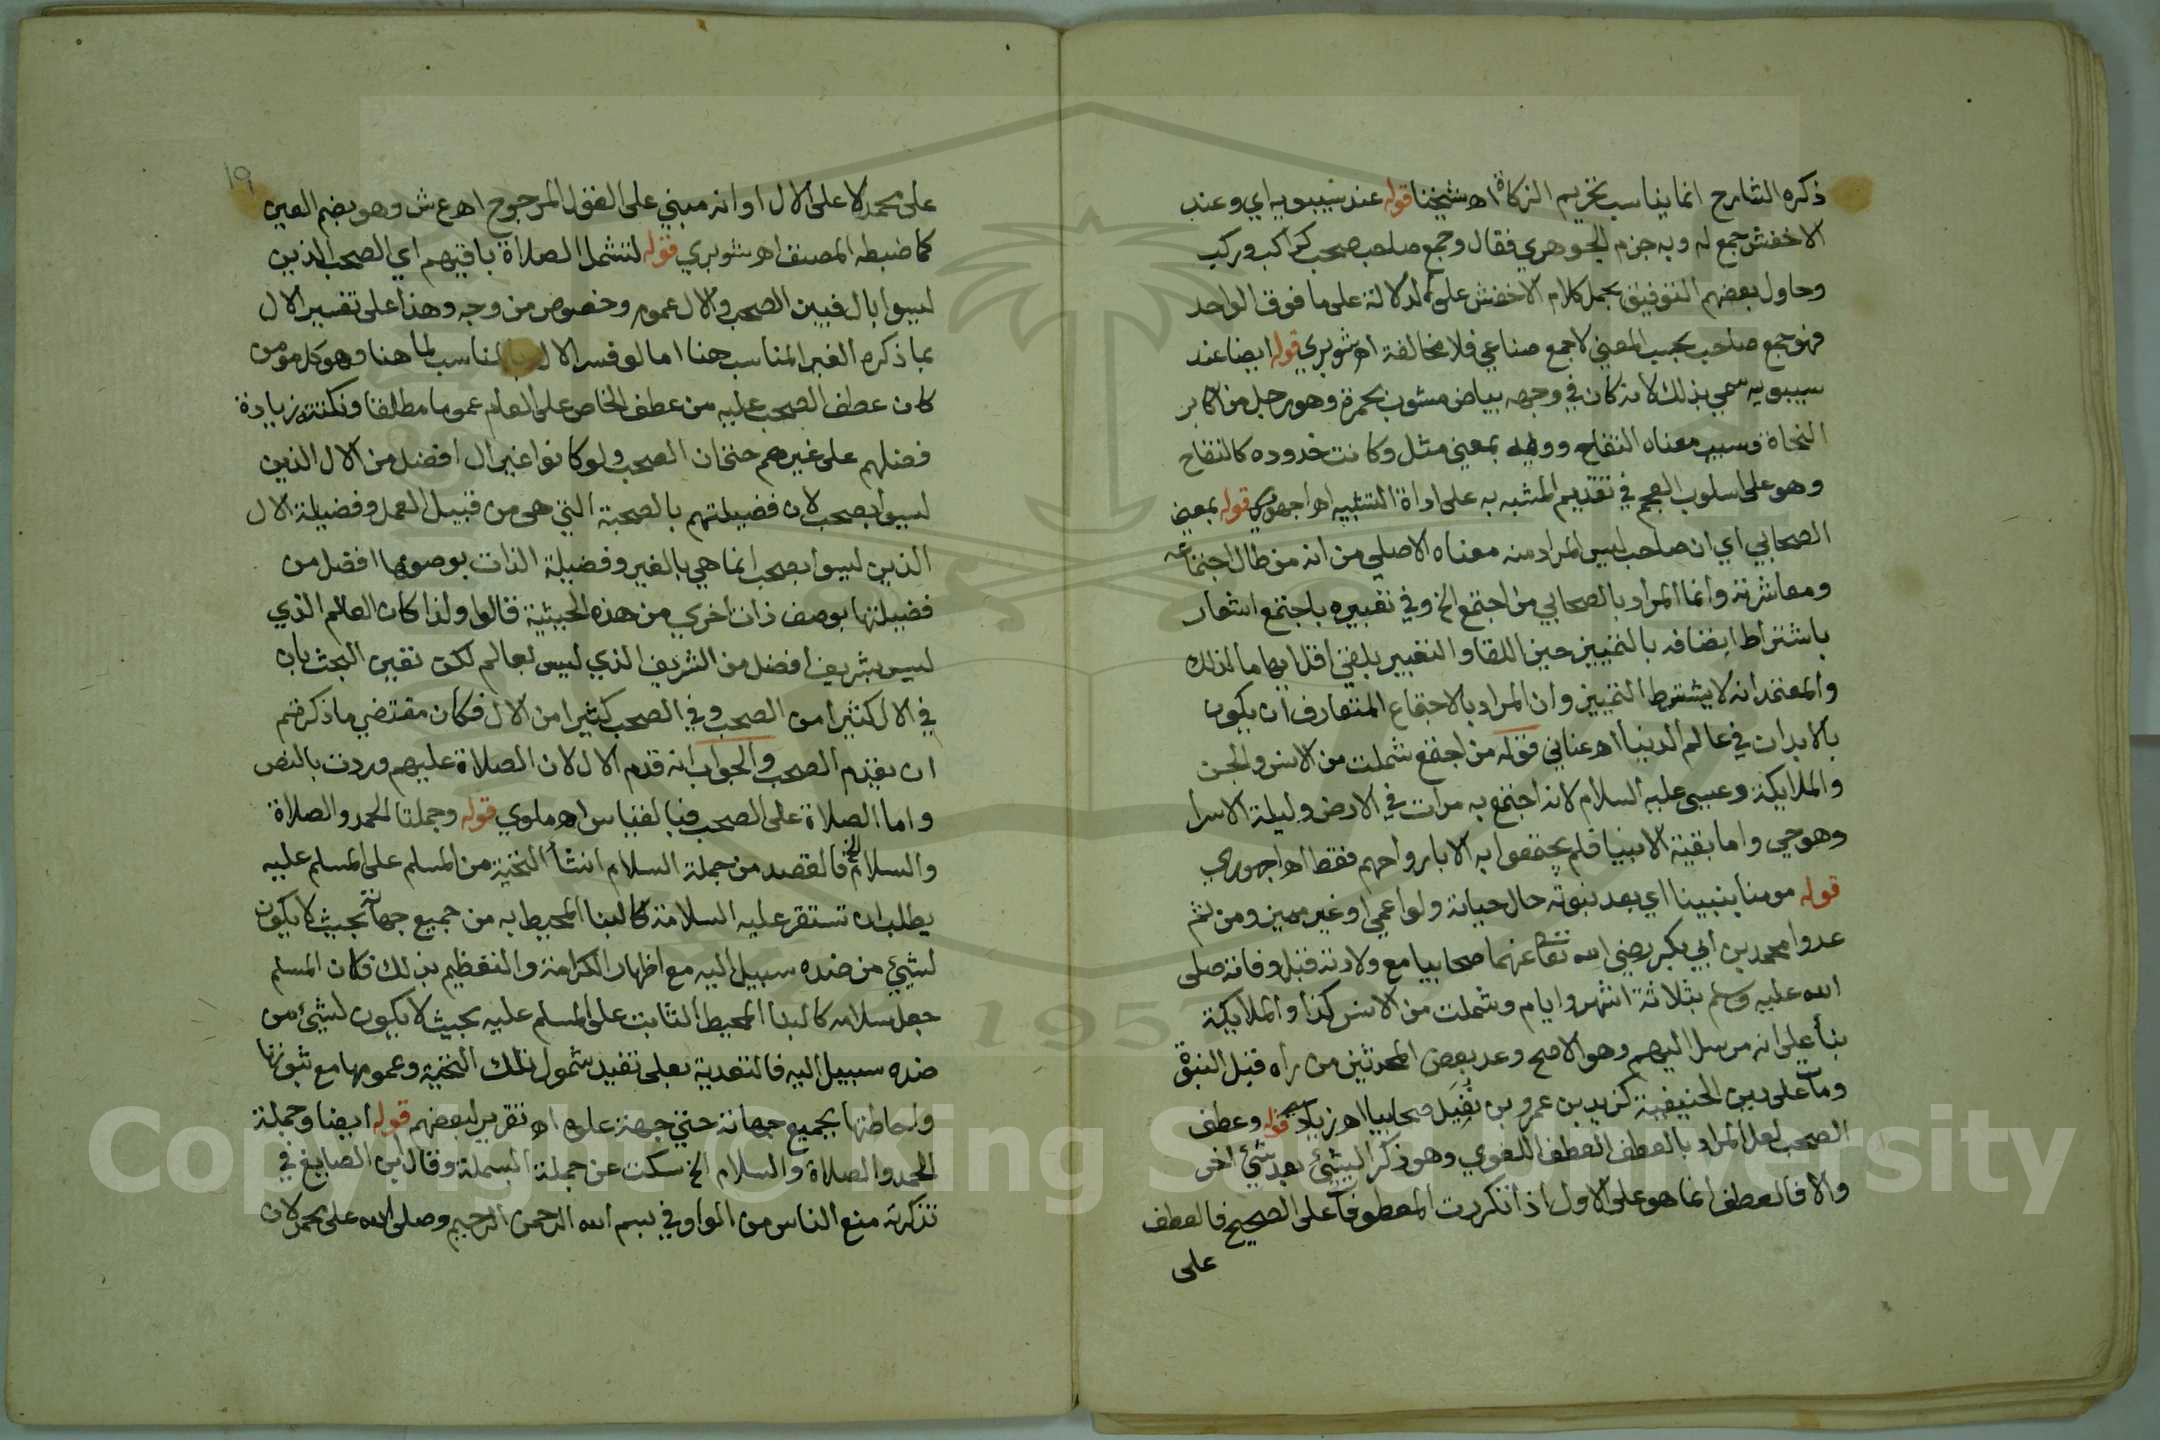 ذكره الشارح انما يناسب تحريم الزكاة اه شيخنا قوله عند سيبويه اي وعند
الاخفش جمع له وبه جزم الجوهري فقال وجمع صاحب صحب كراكب وركب
وحاول بعضهم التوفيق بحمل كلام الاخفش على الدلالة على ما فوق الواحد
فهو جمع صاحب بحسب المعنى لا جمع صناعي فلا مخالفة اه شوبري قوله ايضا عند
سيبويه سمي بذلك لانه كان في وجهه بياض مشوب بحمرة وهو رجل من اكابر
النحاة وسيب معناه التفاح وويه بمعنى مثل وكانت خدوده كالتفاح
وهو على اسلوب العجم في تقديم المشبه به على اداة التشبيه اه اجهوري قوله بمعنى
الصحابي اي ان صاحب ليس المراد منه معناه الاصلي من انه من طال اجتماعه
ومعاشرته وانما المراد بالصحابي من اجتمع الخ وفي تعبيره باجتمع اشعار
باشتراط اتصافه بالتمييز حين اللقا والتعبير بلقي اقل ايهاما لذلك
والمعتمد انه لا يشترط التمييز وان المراد بالاجتماع المتعارف ان يكون
بالابدان في عالم الدنيا اه عناني قوله من اجتمع شملت من الانس والجن
والملايكة وعيسى عليه السلام لانه اجتمع به مرات في الارض وليلة الاسرا
وهو حي واما بقية الانبيا فلم يجتمعوا به الا بارواحهم فقط اه اجهوري
قوله مومنا بنبينا اي بعد نبوته حال حياته ولو اعمى او غير مميز ومن ثم
عدوا محمد بن ابي بكر رضي الله تعا عنهما صحابيا مع ولادته قبل وفاته صلى
الله عليه وسلم بثلاثة اشهر وايام وشملت من الانس كذا والملايكة
بنأ على انه مرسل اليهم وهو الاصح وعد بعض المحدثين من راه قبل النبوة
ومات على دين الحنيفية كزيد بن عمرو بن نفيل صحابيا اه زيادي قوله وعطف
الصحب لعل المراد بالعطف العطف اللغوي وهو ذكر الشيئ بعد شيئ اخر
والا فالعطف انما هو على الاول اذا تكررت المعطوفات على الصحيح فالعطف
على
١٩
على محمد لا على الال او انه مبني على القول المرجوح اه ع ش وهو بضم العين
كما ضبطه المصنف اه شوبري قوله لتشمل الصلاة باقيهم اي الصحب الذين
ليسوا بال فبين الصحب والال عموم وخصوص من وجه وهذا على تفسير الال
بما ذكره الغير المناسب هنا اما لو فسر الال بالمناسب لما هنا وهو كل مومن
كان عطف الصحب عليه من عطف الخاص على العام عموما مطلقا ونكتته زيادة
فضلهم على غيرهم حتى ان الصحب ولو كانوا غير ال افضل من الال الذين
ليسوا بصحب لان فضيلتهم بالصحبة التي هي من قبيل العمل وفضيلة الال
الذين ليسوا بصحب انما هي بالغير وفضيلة الذات بوصفها افضل من
فضيلتها بوصف ذات اخري من هذه الحيثية قالوا ولذا كان العالم الذي
ليس بشريف افضل من الشريف الذي ليس بعالم لكن تعين البحث بان
في الال كثيرا من الصحب وفي الصحب كثيرا من الال فكان مقتضي ما ذكرتم
ان يقدم الصحب والجواب انه قدم الال لان الصلاة عليهم وردت بالنص
واما الصلاة على الصحب فبالقياس اه ملوي قوله وجملتا الحمد والصلاة
والسلام الخ فالقصد من جملة السلام انشأ التحية من المسلم على المسلم عليه
يطلب ان تستقر عليه السلامة كالبنا المحيط به من جميع جهاته بحيث لا يكون
لشيئ من ضده سبيل اليه مع اظهار الكرامة والتعظيم بذلك فكان المسلم
جعل سلامه كالبنا المحيط الثابت على المسلم عليه بحيث لا يكون لشيئ من
ضده سبيل اليه فالتعدية بعلى تفيد شمول تلك التحية وعمومها مع ثبوتها
واحاطتها بجميع جهاته حتى جهة علوه اه تقرير لبعضهم قوله ايضا وجملة
الحمد والصلاة والسلام الخ سكت عن جملة البسملة وقال ابن الصايغ في
تذكرته منع الناس من الواو في بسم الله الرحمن الرحيم وصلى الله على محمد لان
1957
Copyright © King Saud University